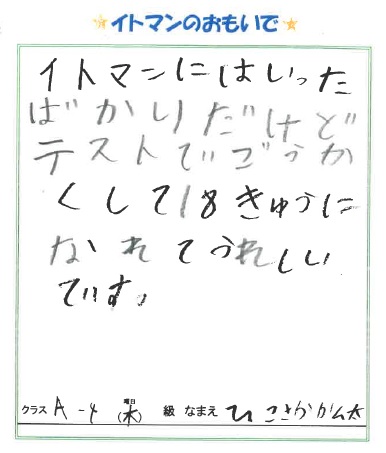 ★イトマンのおもいで★
イトマンにはいった
ばかりだけど
テストでごうか
くして18きゅうに
なれてうれしい
です。
クラス A-4 曜日(木) 級 なまえ ひこさかかん太